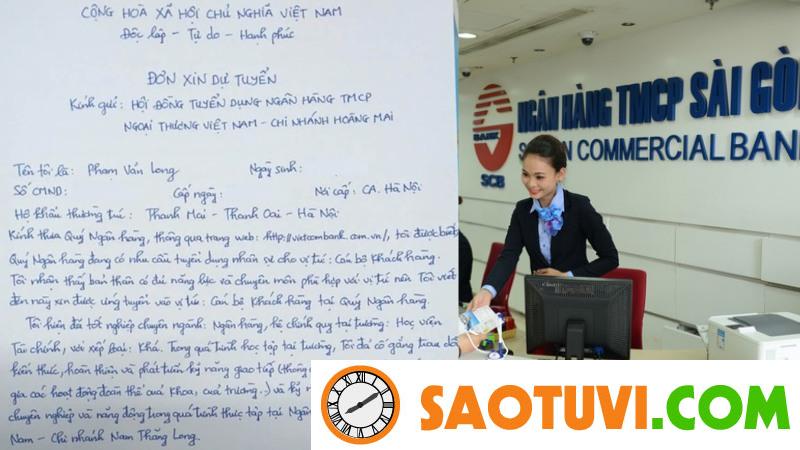 CỘNG HOÀ XÃ HỘI CHỦ NGHĨA VIỆT NAM
Độc lập - Tự do - Hạnh phúc
ĐƠN XIN DỰ TUYỂN
Kính gửi: HỘI ĐỒNG TUYỂN DỤNG NGÂN HÀNG TMCP
NGOẠI THƯƠNG VIỆT NAM - CHI NHÁNH HOÀNG MAI
Tên tôi là: Phạm Văn Long Ngày sinh:
Số CMND: Cấp ngày: Nơi cấp: CA. Hà Nội
Hộ khẩu thường trú: Thanh Mai - Thanh Oai - Hà Nội
Kính thưa Quý Ngân hàng, thông qua trang web: http://vietcombank.com.vn/, tôi được biết
Quý Ngân hàng đang có nhu cầu tuyển dụng nhân sự cho vị trí: Cán bộ khách hàng.
Tôi nhận thấy bản thân có đủ năng lực và chuyên môn phù hợp với vị trí nên Tôi viết
đơn này xin được ứng tuyển vào vị trí: Cán bộ Khách hàng tại Quý Ngân hàng.
Tôi hiện đã tốt nghiệp chuyên ngành: Ngân hàng, hệ chính quy tại trường: Học viện
Tài chính, với xếp loại: Khá. Trong quá trình học tập tại trường, Tôi đã cố gắng trau dồi
kiến thức, hoàn thiện và phát triển kỹ năng giao tiếp (thông
gia các hoạt động đoàn thể của Khoa, của trường..) và kỹ
chuyên nghiệp và năng động trong quá trình thực tập tại Ngân
Nam - Chi nhánh Nam Thăng Long.
NGÂN HÀNG TMCP SÀI GÒ
COMMERCIAL BANK
BANK
SCB
SAOTUVI.COM